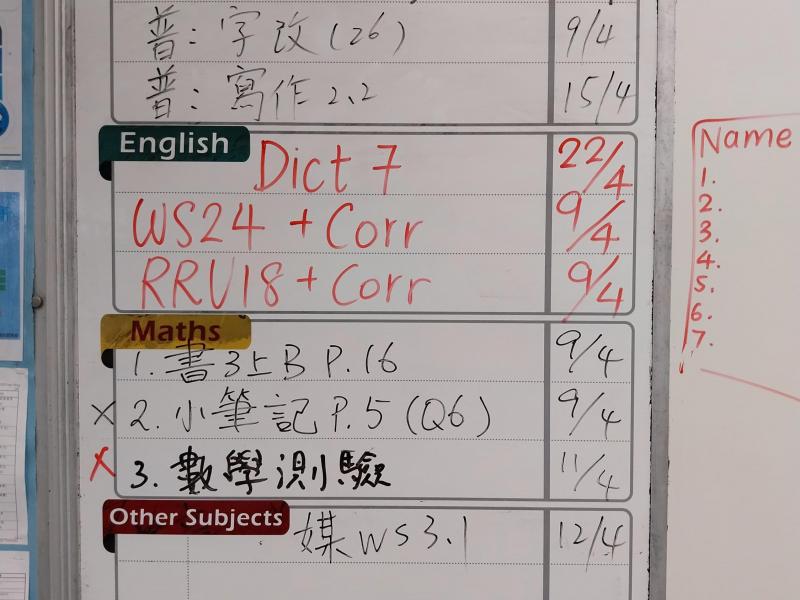 普：字改(26) 9/4
普：寫作2.2 15/4
English
Dict 7 22/4
WS24 + Corr 9/4
RRU18 + Corr 9/4
Maths
1. 書3上B P.16 9/4
× 2. 小筆記 P.5 (Q6) 9/4
× 3. 數學測驗 11/4
Other Subjects
媒 WS 3.1 12/4
Name
1.
2.
3.
4.
5.
6.
7.